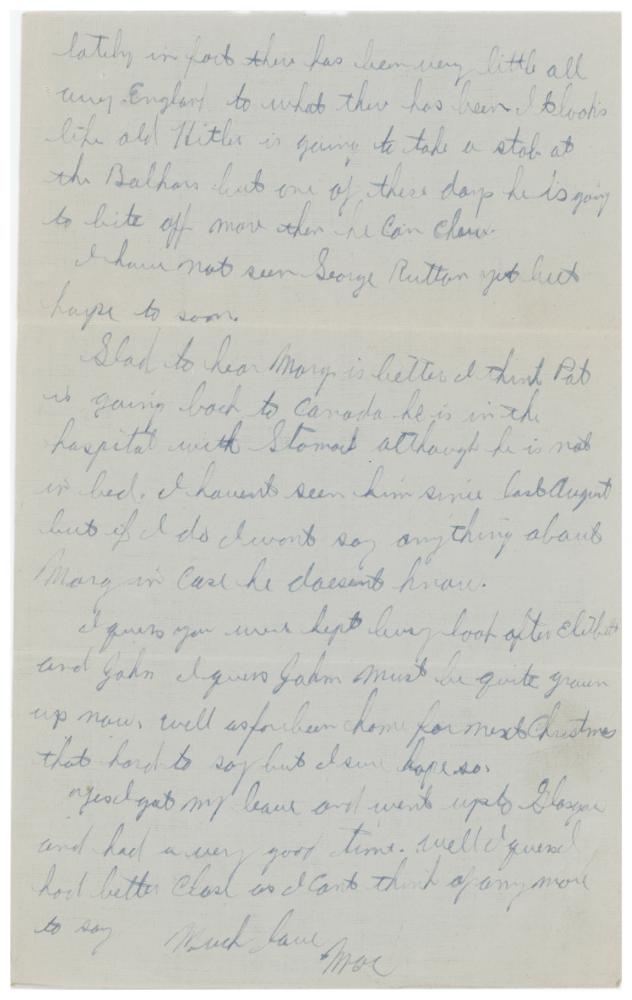 lately in fact there has been very little all
over England to what there has been. It looks
like old Hitler is going to take a stab at
the Balkans but one of these days he is going
to bite off more then he can chew.
I have not seen George Ruttan yet but
hope to soon.
Glad to hear Marg is better I think Pat
is going back to Canada he is in the
hospital with Stomach although he is not
in bed. I havent seen him since last August
but if I do I wont say anything about
Marg in case he doesent know.
I guess you were kept busy look after
and John I guess John must be quite grown
up now. well as for been home for next Christmas
that hard to say but I sure hope so.
yes I got my leave and went up to Glasgow
and had a very good time. well I guess I
had better close as I cant think of any more
to say
Much love
Moe